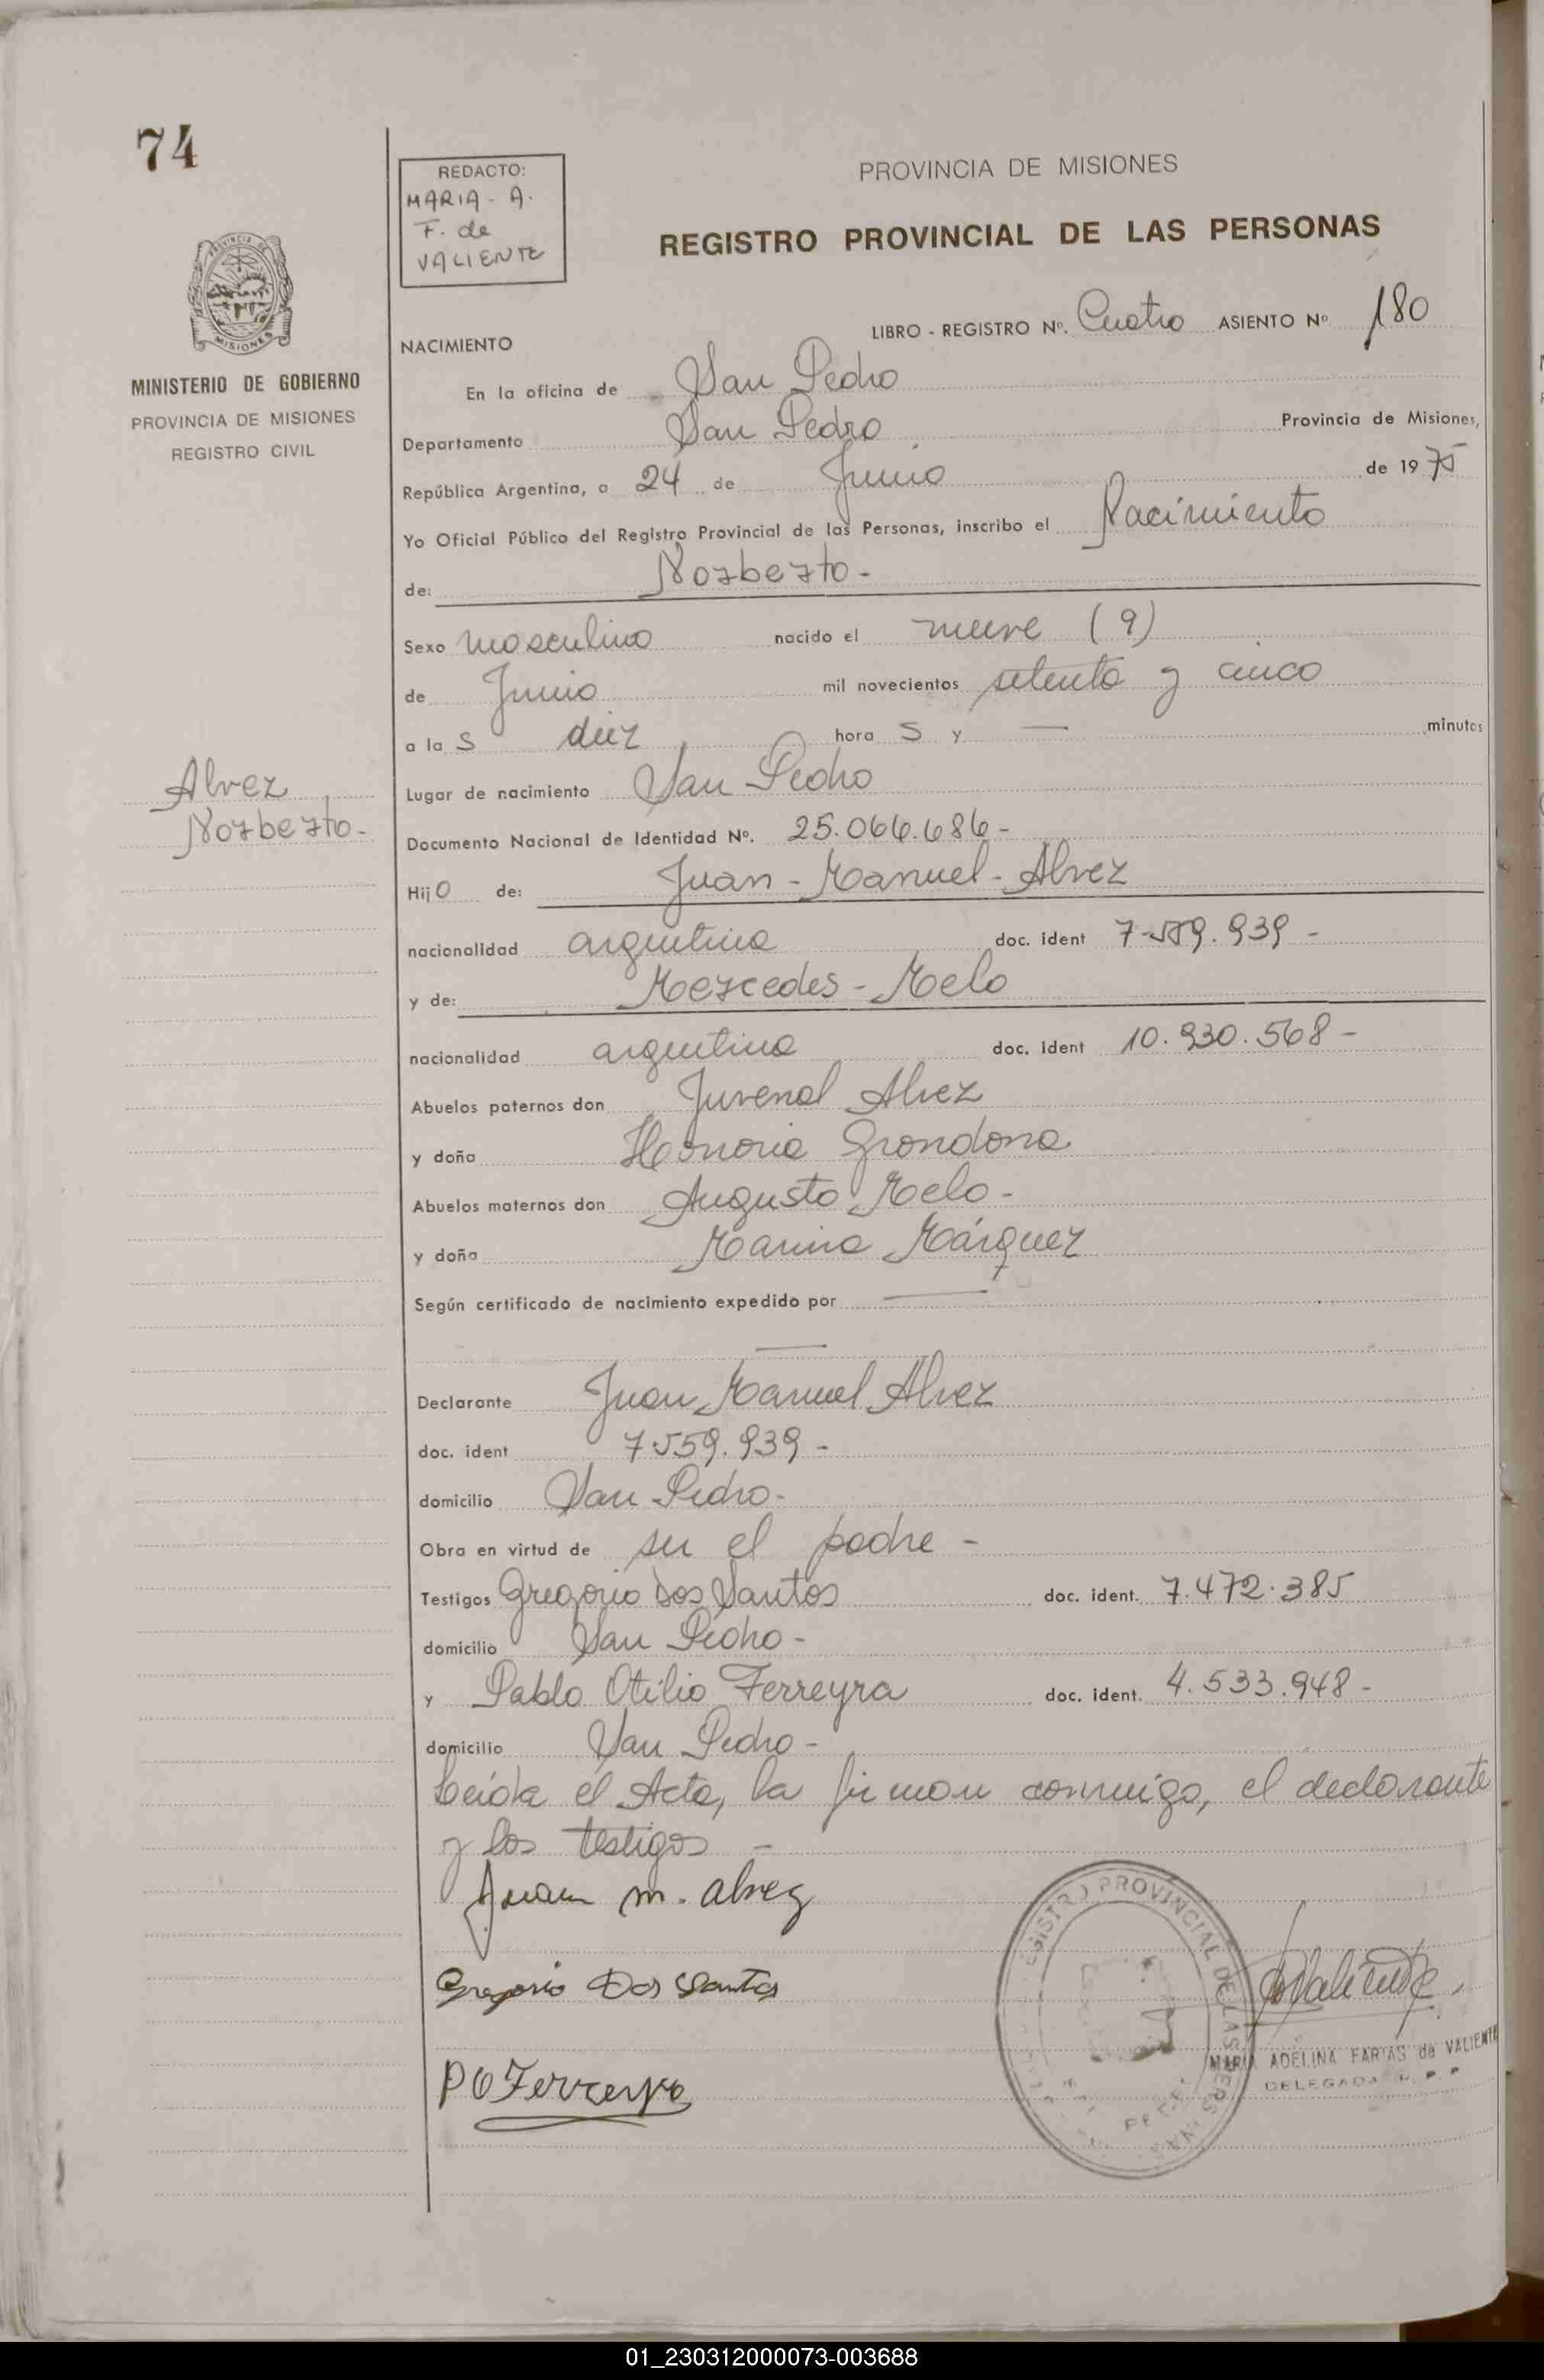 74
REDACTO:
MARIA - A.
F. de
VALIENTE
PROVINCIA DE MISIONES
REGISTRO PROVINCIAL DE LAS PERSONAS
MISIONES
MINISTERIO DE GOBIERNO
PROVINCIA DE MISIONES
REGISTRO CIVIL
LIBRO - REGISTRO Nº. Cuatro ASIENTO Nº 180
NACIMIENTO
En la oficina de San Pedro
Departamento San Pedro Provincia de Misiones,
República Argentina, a 24 de Junio de 1975
Yo Oficial Público del Registro Provincial de las Personas, inscribo el Nacimiento
de: Norberto -
Sexo masculino nacido el nueve (9)
de Junio mil novecientos setenta y cinco
a las diez horas y — minutos
Alvez
Norberto -
Lugar de nacimiento San Pedro
Documento Nacional de Identidad Nº. 25.066.686 -
Hijo de: Juan - Manuel - Alvez
nacionalidad argentina doc. ident 7.559.939 -
y de: Mercedes - Melo
nacionalidad argentina doc. ident 10.930.568 -
Abuelos paternos don Juvenal Alvez
y doña Honoria Grondona
Abuelos maternos don Augusto Melo -
y doña Marina Márquez
Según certificado de nacimiento expedido por —
—
Declarante Juan Manuel Alvez
doc. ident 7.559.939 -
domicilio San Pedro -
Obra en virtud de ser el padre -
Testigos Gregorio Dos Santos doc. ident. 7.472.385
domicilio San Pedro -
y Pablo Otilio Ferreyra doc. ident. 4.533.948 -
domicilio San Pedro -
Leída el Acta, la firman conmigo, el declarante
y los testigos -
Juan m. alvez
Gregorio Dos Santos
P O Ferreyra
REGISTRO PROVINCIAL DE LAS PERSONAS
MARIA ADELINA FARIAS de VALIENTE
DELEGADA R. P. P.
01_230312000073-003688